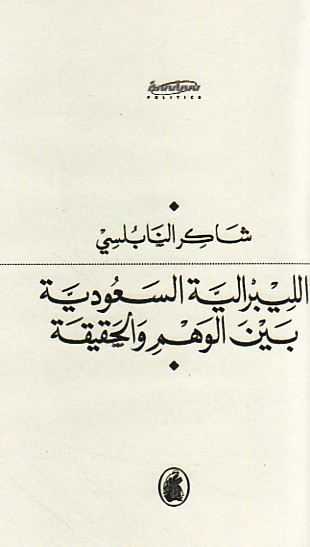 سياسة
POLITICS
شَاكِر النَّابُلسِي
الليبْراليَّة السَّعُوديَّة
بَيْنَ الوَهْمِ وَالحَقِيقَة